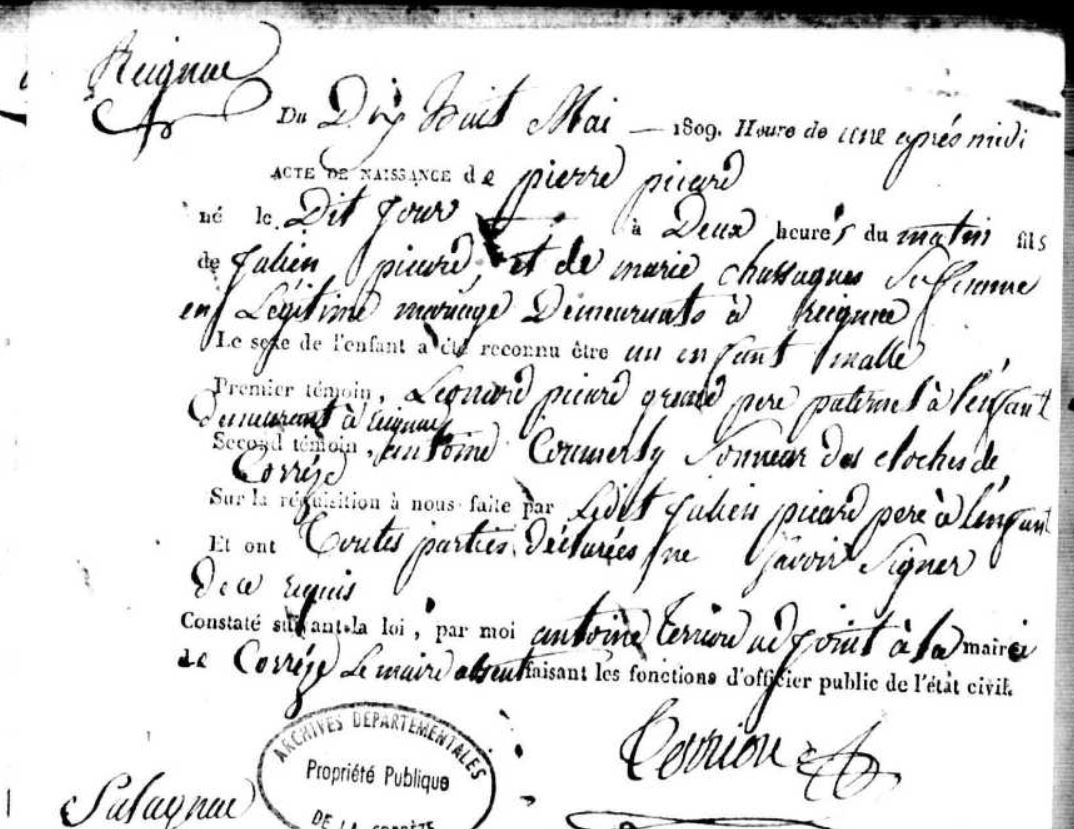 Reignac
Du Dix huit Mai — 1809. Heure de une après midi
ACTE DE NAISSANCE de pierre picard
né le Dit Jour à Deux heures du matin fils
de Julien picard, et de marie chassagnes sa femme
en Légitime mariage Demeurants à Reignac
Le sexe de l'enfant a été reconnu être un enfant malle
Premier témoin, Léonard picard grand pere paternel à l'enfant
Demeurant à Reignac
Second témoin, antoine Sonneur des cloches de
Corrèze
Sur la réquisition à nous faite par Ledit Julien picard pere à L'enfant
Et ont Toutes parties déclarées ne savoir signer
De ce requis
Constaté suivant la loi, par moi antoine Terriou adjoint à la mairie
de Corrèze Le maire absent faisant les fonctions d'officier public de l'état civil.
Terriou
ARCHIVES DÉPARTEMENTALES
Propriété Publique
DE LA CORRÈZE
Salagnac